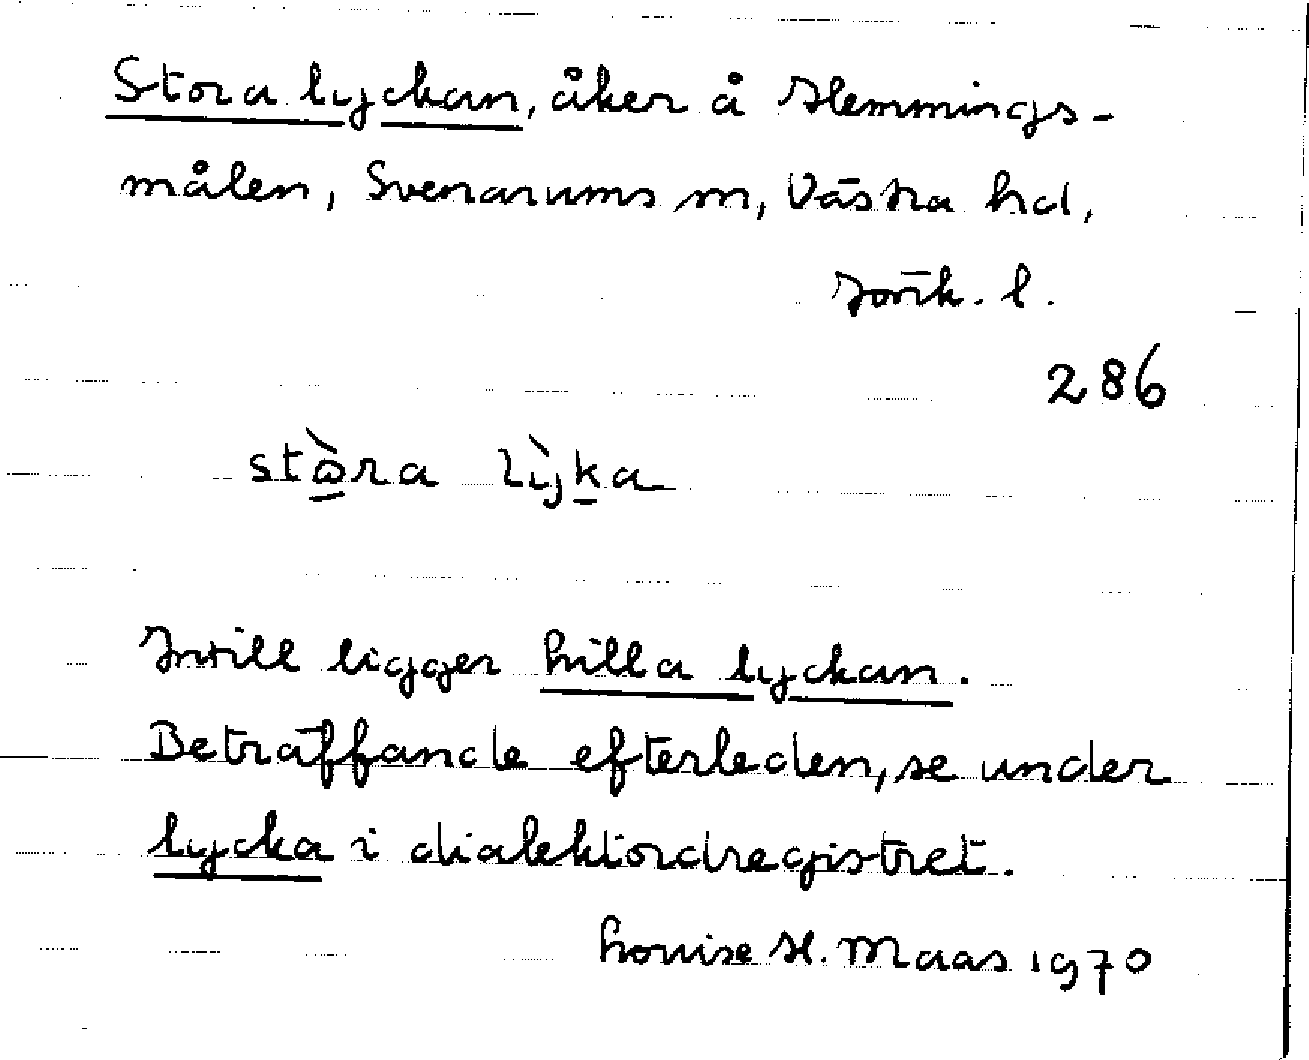 Stora lyckan, åker å Hemmings-
målen, Svenarums sn, Västra hd,
Jönk. l.
286
stòra lỳka
Intill ligger Lilla lyckan.
Beträffande efterleden, se under
lycka i dialektordregistret.
Louise H. Maas 1970